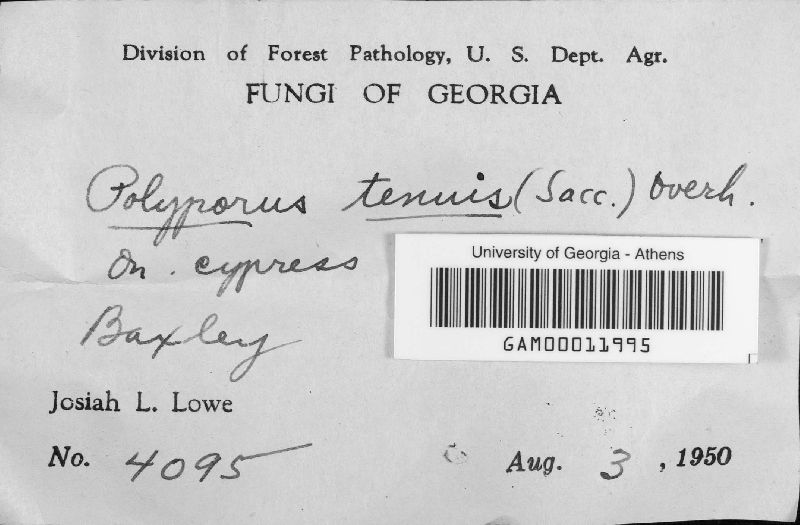 Division of Forest Pathology, U. S. Dept. Agr.
FUNGI OF GEORGIA
Polyporus tenuis (Sacc.) Overh.
On cypress
Baxley
University of Georgia - Athens
GAM00011995
Josiah L. Lowe
No. 4095
Aug. 3, 1950